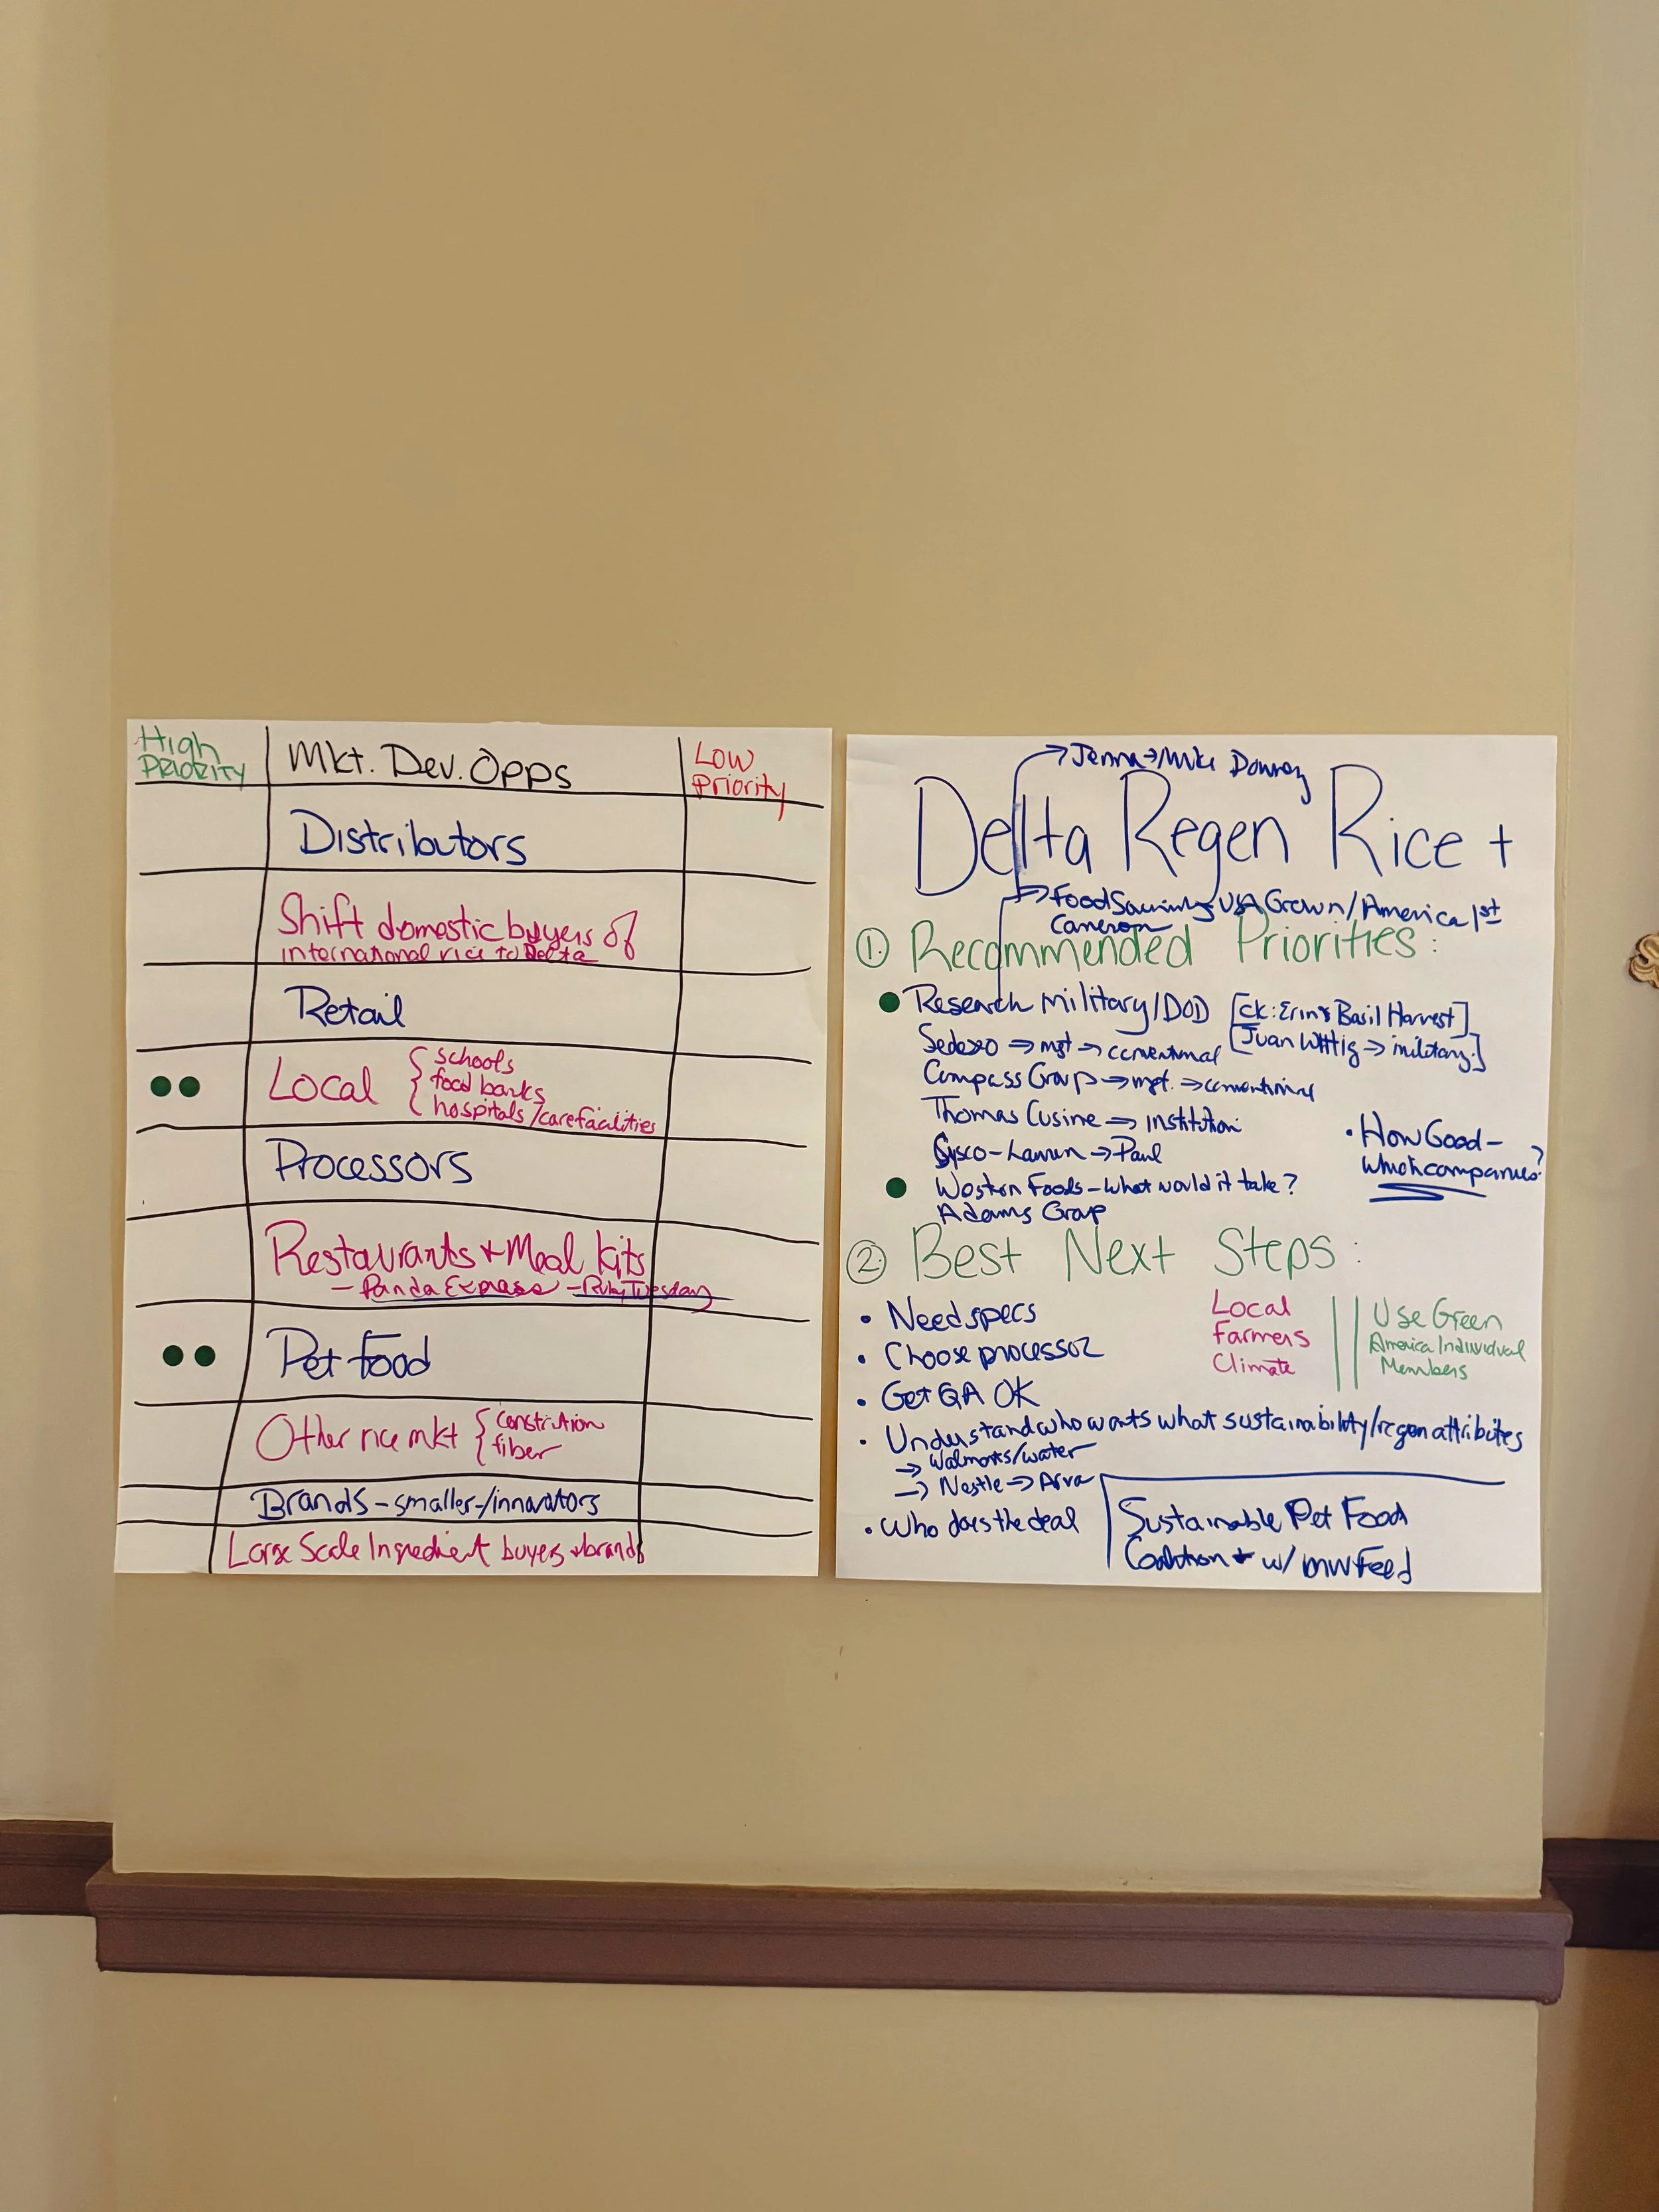 High
PRIORITY
Mkt. Dev. Opps
Low
Priority
Distributors
Shift domestic buyers of
international rice to Delta
Retail
Local
schools
food banks
hospitals/care facilities
Processors
Restaurants + Meal Kits
- Panda Express - Ruby Tuesday
Pet Food
Other rice mkt
fiber
Brands - smaller-/innovators
Large Scale Ingredient buyers + brands
→ Jenna → Mike
Delta Regen Rice +
→ Food USA Grown/America 1st
Cameron
① Recommended Priorities:
Research Military/DOD [ck: Erin & Basil Harvest]
[Juan → military]
→ mgt → conventional
Compass Group → mgt. → conventional
Thomas Cusine → Institution
Sysco - Lauren → Paul
• How Good -
Which companies?
Western Foods - What would it take?
Adams Grap
② Best Next Steps:
• Need specs
• Choose processor
• Get QA OK
Local
Farmers
Climate
Use Green
America Individual
Members
• Understand who wants what sustainability/regen attributes
→ Walmarts/water
→ Nestle → Arva
• Who does the deal
Sustainable Pet Food
Coalition + w/ MWFeed